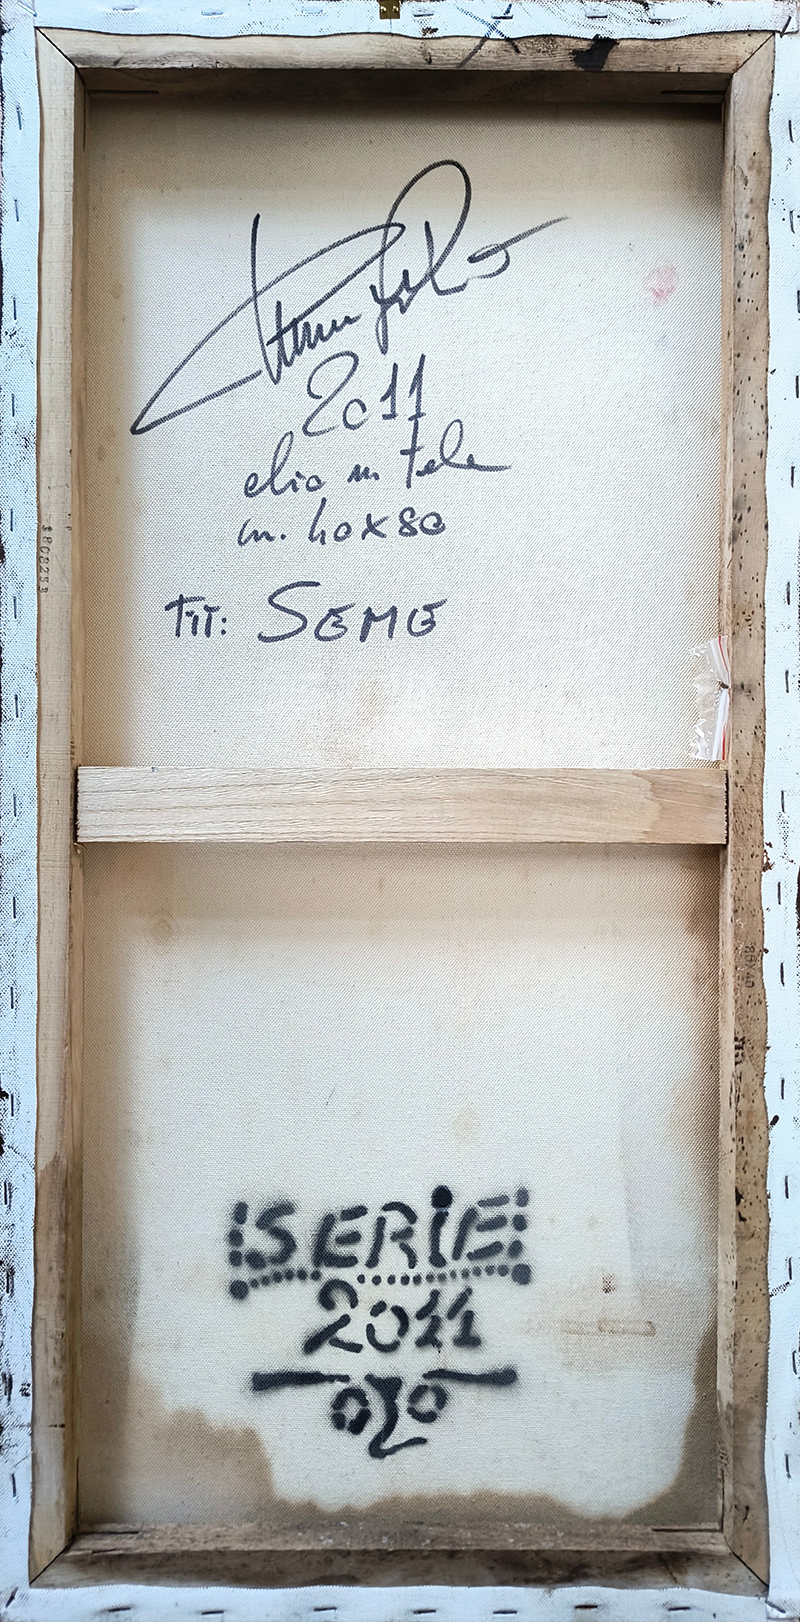 2011
olio su tela
cm. 40x80
TIT: SEME
1808253
80X40
SERIE
2011